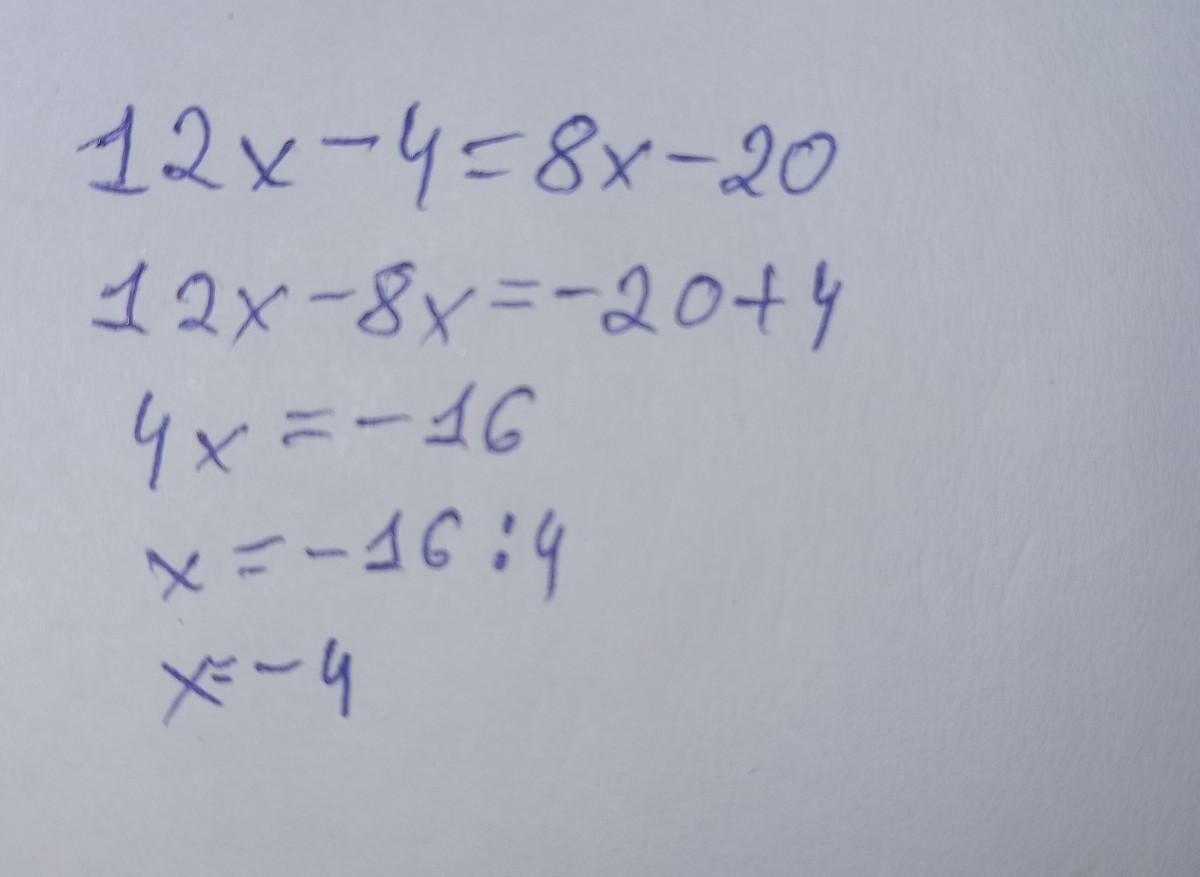 12x-4=8x-20
12x-8x=-20+4
4x=-16
x=-16:4
x=-4